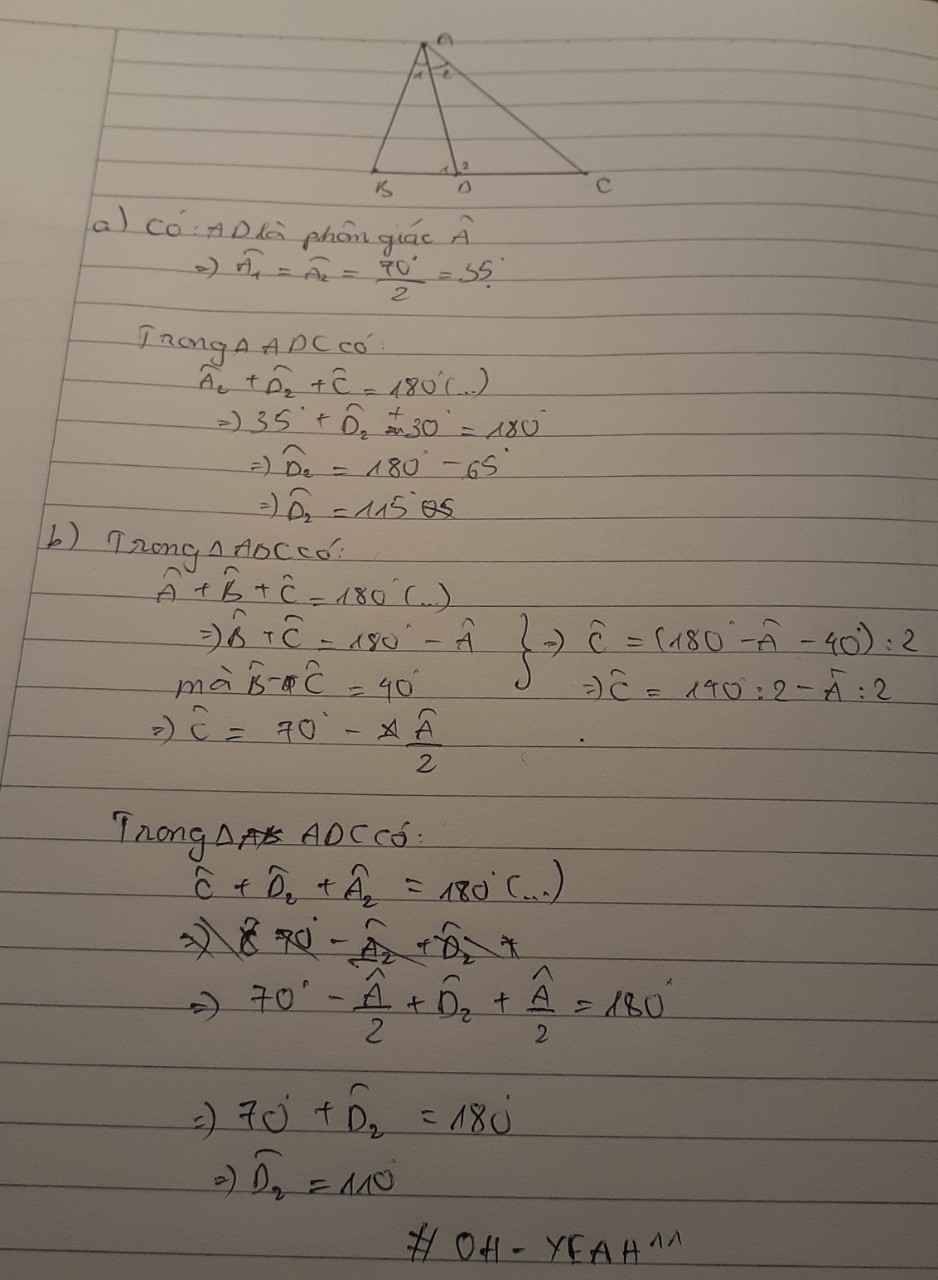 A
1 2
1 2
B D C
a) Có: AD là phân giác Â
=) Â₁ = Â₂ = 70°/2 = 35°
Trong Δ ADC có:
Â₂ + D̂₂ + Ĉ = 180° (...)
=) 35° + D̂₂ + 30° = 180°
=) D̂₂ = 180° - 65°
=) D̂₂ = 115°
b) Trong Δ ABC có:
Â + B̂ + Ĉ = 180° (...)
=) B̂ + Ĉ = 180° - Â } =) Ĉ = (180° - Â - 40°) : 2
mà B̂ - Ĉ = 40° =) Ĉ = 140° : 2 - Â : 2
=) Ĉ = 70° - Â/2
Trong Δ ADC có:
Ĉ + D̂₂ + Â₂ = 180° (...)
=) 70° - Â/2 + D̂₂ + Â/2 = 180°
=) 70° + D̂₂ = 180°
=) D̂₂ = 110°
# OH - YEAH ^^